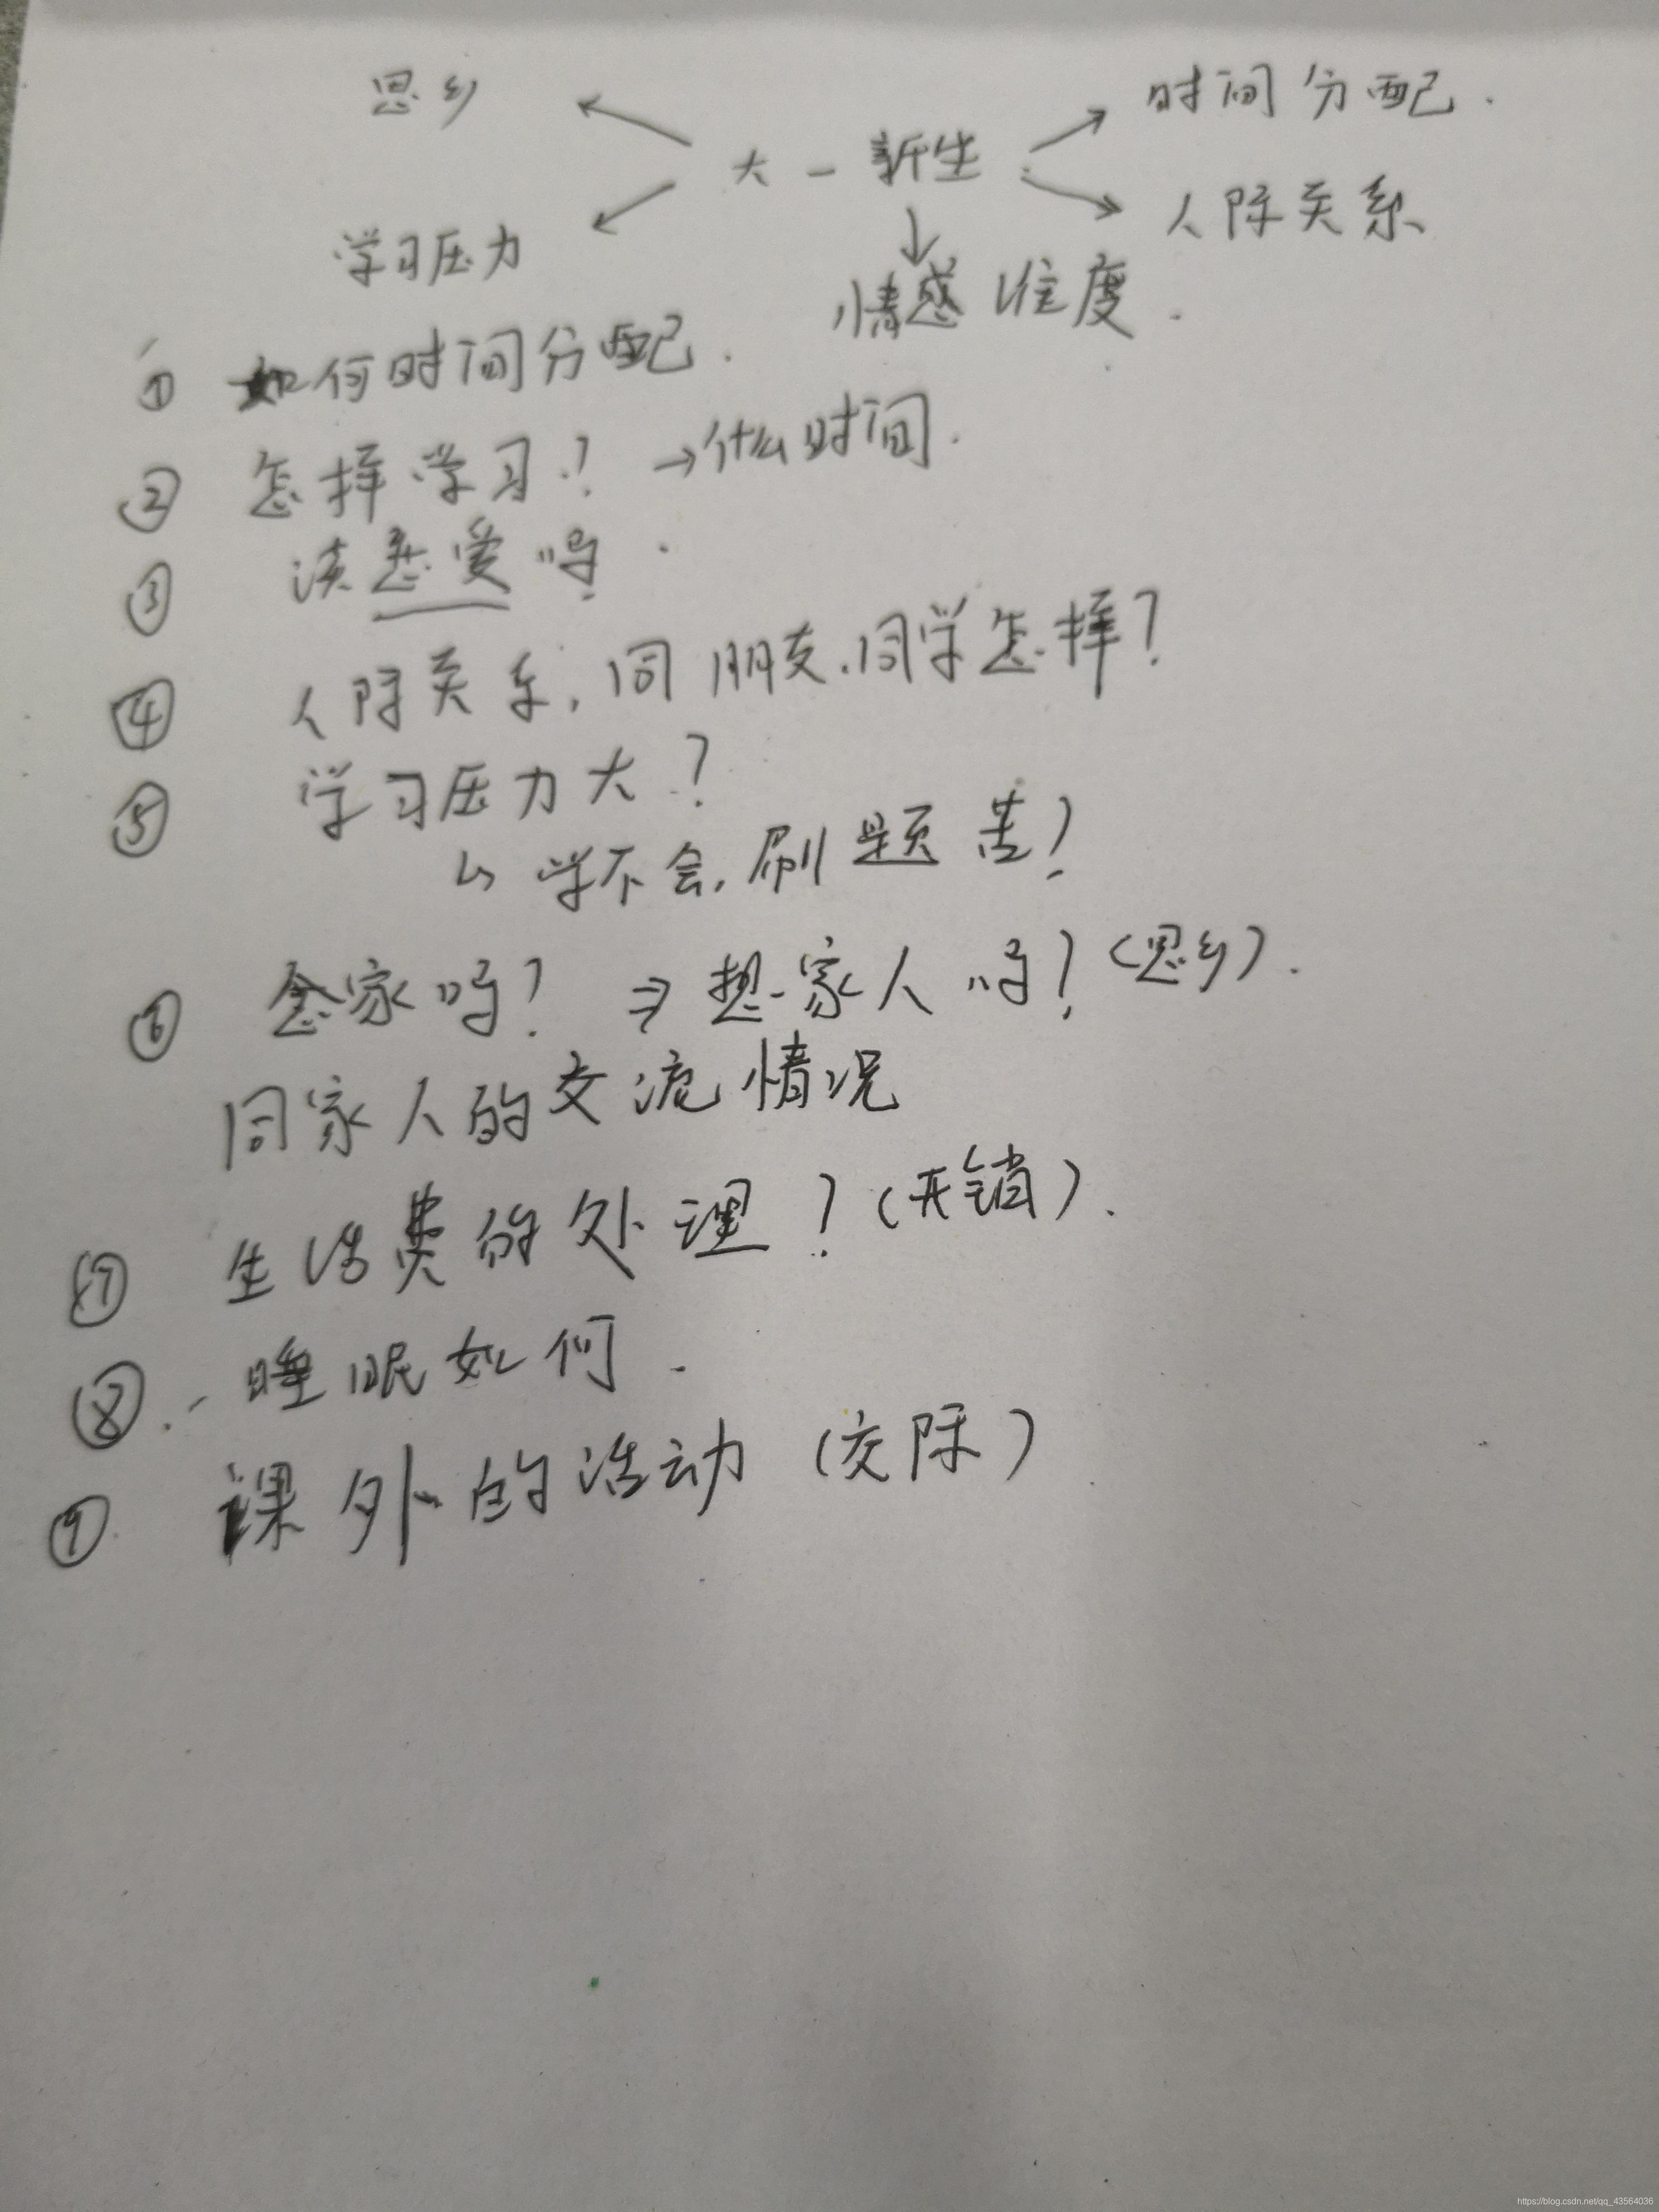 思乡
时间分配.
大一新生
学习压力
人际关系
情感维度.
① 如何时间分配.
② 怎样学习? →什么时间.
③ 谈恋爱吗.
④ 人际关系,同朋友.同学怎样?
⑤ 学习压力大?
↳ 学不会,刷题苦?
⑥ 念家吗? ⇒ 想家人吗?(思乡).
同家人的交流情况
⑦ 生活费的处理?(开销).
⑧. 睡眠如何.
⑨ 课外的活动(交际)
https://blog.csdn.net/qq_43564036